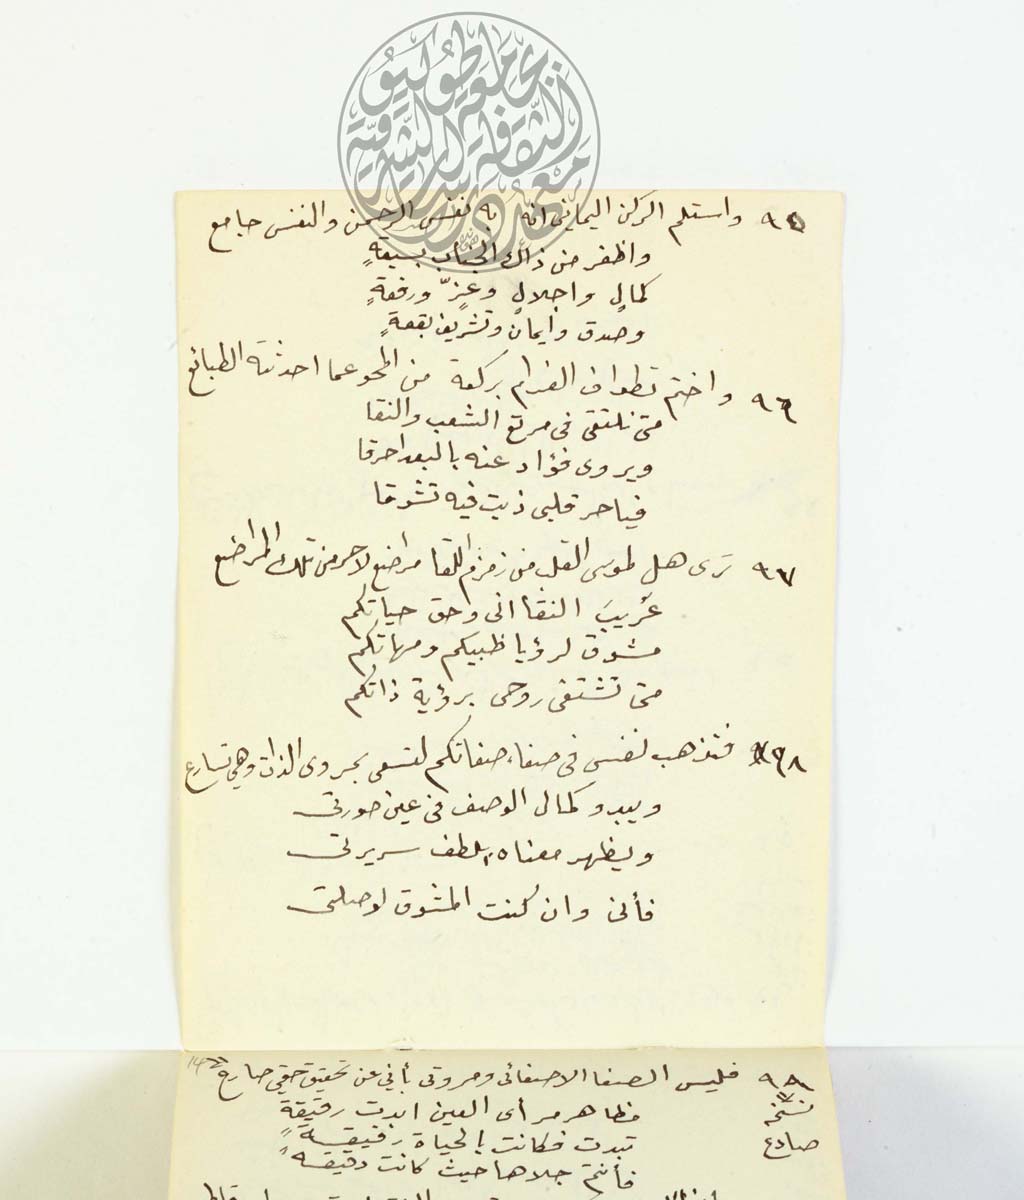 ٩٥ واستلم الركن اليماني انه به نفس الرحمن والنفس جامع
واظفر من ذاك الجناب بسيقةٍ
كمالٍ واجلالٍ وعزٍّ ورفعةٍ
وصدق وايمان وتشريف بقعةٍ
٩٦ واختم تطواف الغرام بركعة من المحو عما احدثته الطبائع
متى نلتقى فى مربع الشعب والنقا
ويروى فؤاد عنه بالبعد احرقا
فياحر قلبى ذبت فيه تشوقا
٩٧ ترى هل لموسى القلب من زمزم اللقا مراضع لاحرمن تلك المراضع
عُريبَ النقا انى وحق حياتكم
مشوق لرؤيا ظبيكم ومهاتكم
متى تشتفى روحى برؤية ذاتكم
٩٨ فتذهب نفسى فى صفاء صفاتكم لتسعى بمروى الذات وهي تسارع
ويبدو كمال الوصف فى عين صورتى
ويظهر معناه بلطف سريرتى
فأنى وان كنت المشوق لوصلتى
١٤
٩٩ فليس الصفا الاصفائى ومروتى بأني عن تحقيق حقي صارع
نسخة
صادع
مظاهر مرأى العين ابدت رقيقةٍ
تبدت فكانت بالحياة رفيقةً
فأنتم جلاها حيث كانت دقيقةً